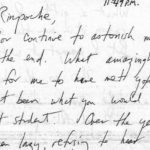 11:49 P.M.
Rinpoche,
or continue to astonish m
the end. What amazing
for me to have met yo
t been what you would
t student. Over the yea
en lazy, refusing to hear